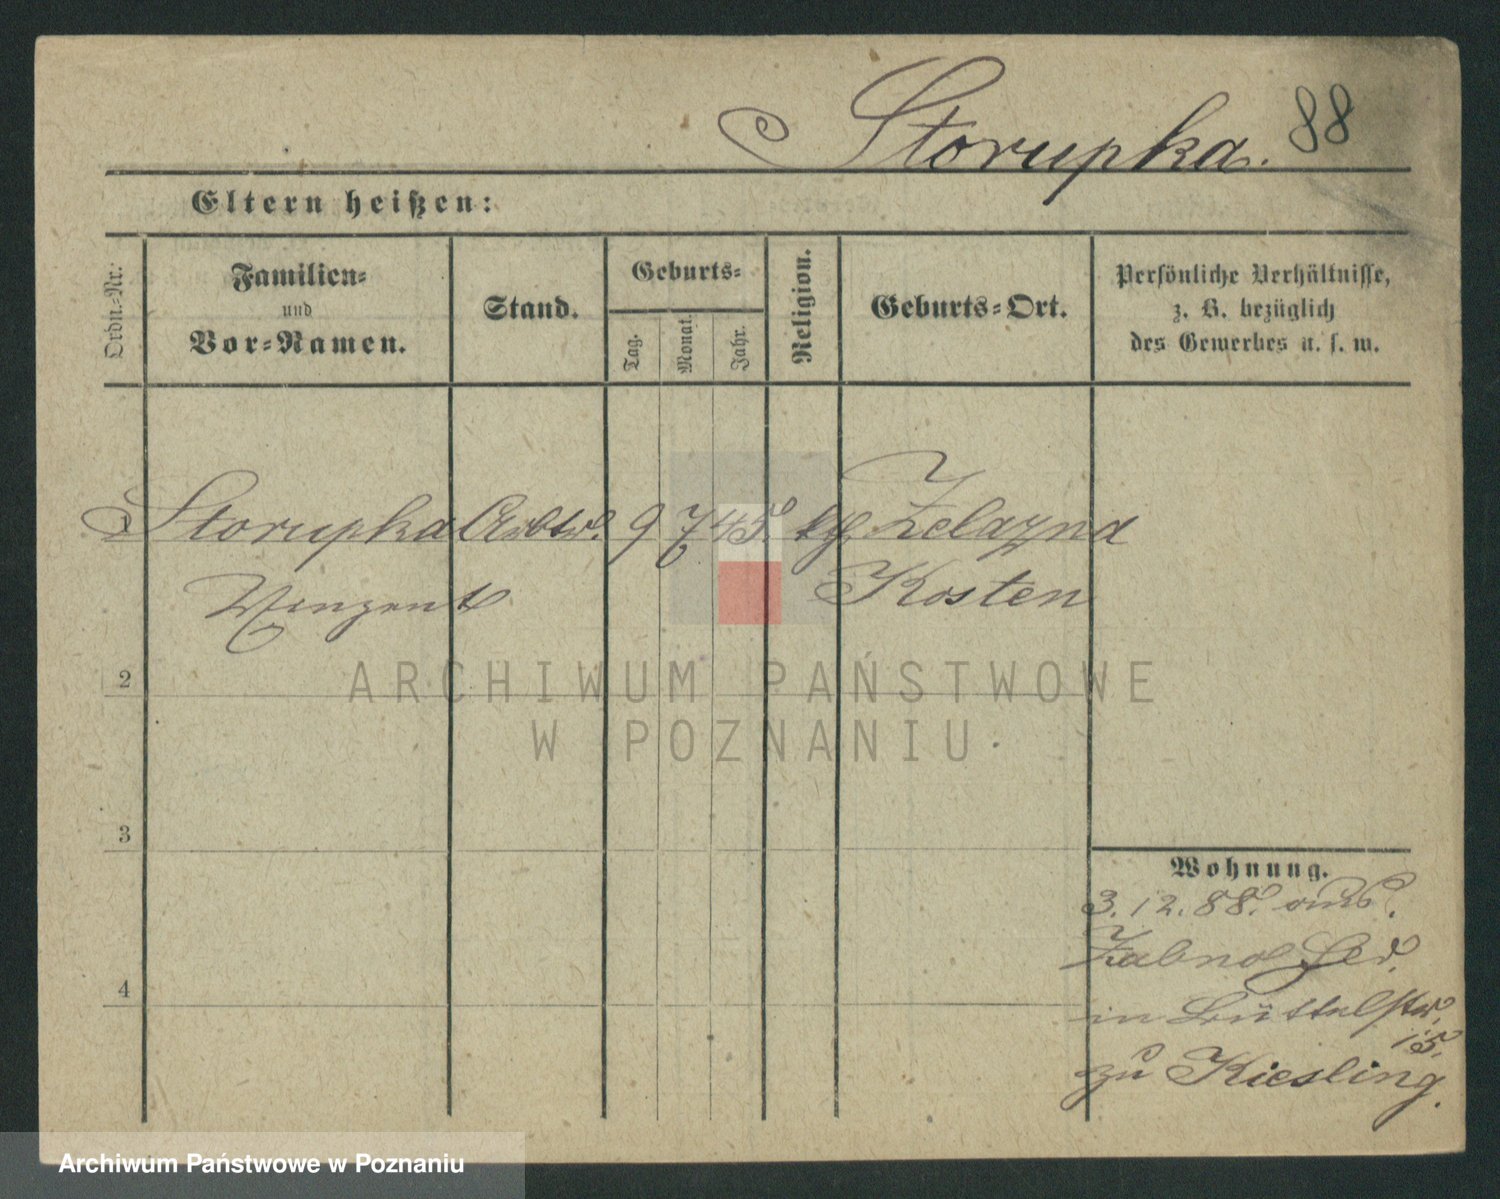 Storupka. 88
Eltern heißen:
Ordn.-Nr.
Familien-
und
Vor-Namen.
Stand.
Geburts-
Tag.
Monat.
Jahr.
Religion.
Geburts-Ort.
Persönliche Verhältnisse,
z. B. bezüglich
des Gewerbes u. s. w.
1 Storupka Arbtr. 9 7 45. kth. Zelazna
Vinzent Kosten
2
3
4
Wohnung.
3. 12. 88. aus.
Zabno
in Büttelstr.
15.
zu Kiesling.
ARCHIWUM PAŃSTWOWE
W POZNANIU
Archiwum Państwowe w Poznaniu